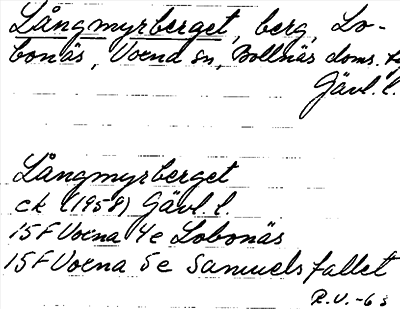 Långmyrberget, berg, Lo-
bonäs, Voxna sn, Bollnäs doms.
Gävl. l.
Långmyrberget
ek (1958) Gävl l.
15F Voxna 4e Lobonäs
15F Voxna 5e Samuelsfallet
R.V. -63